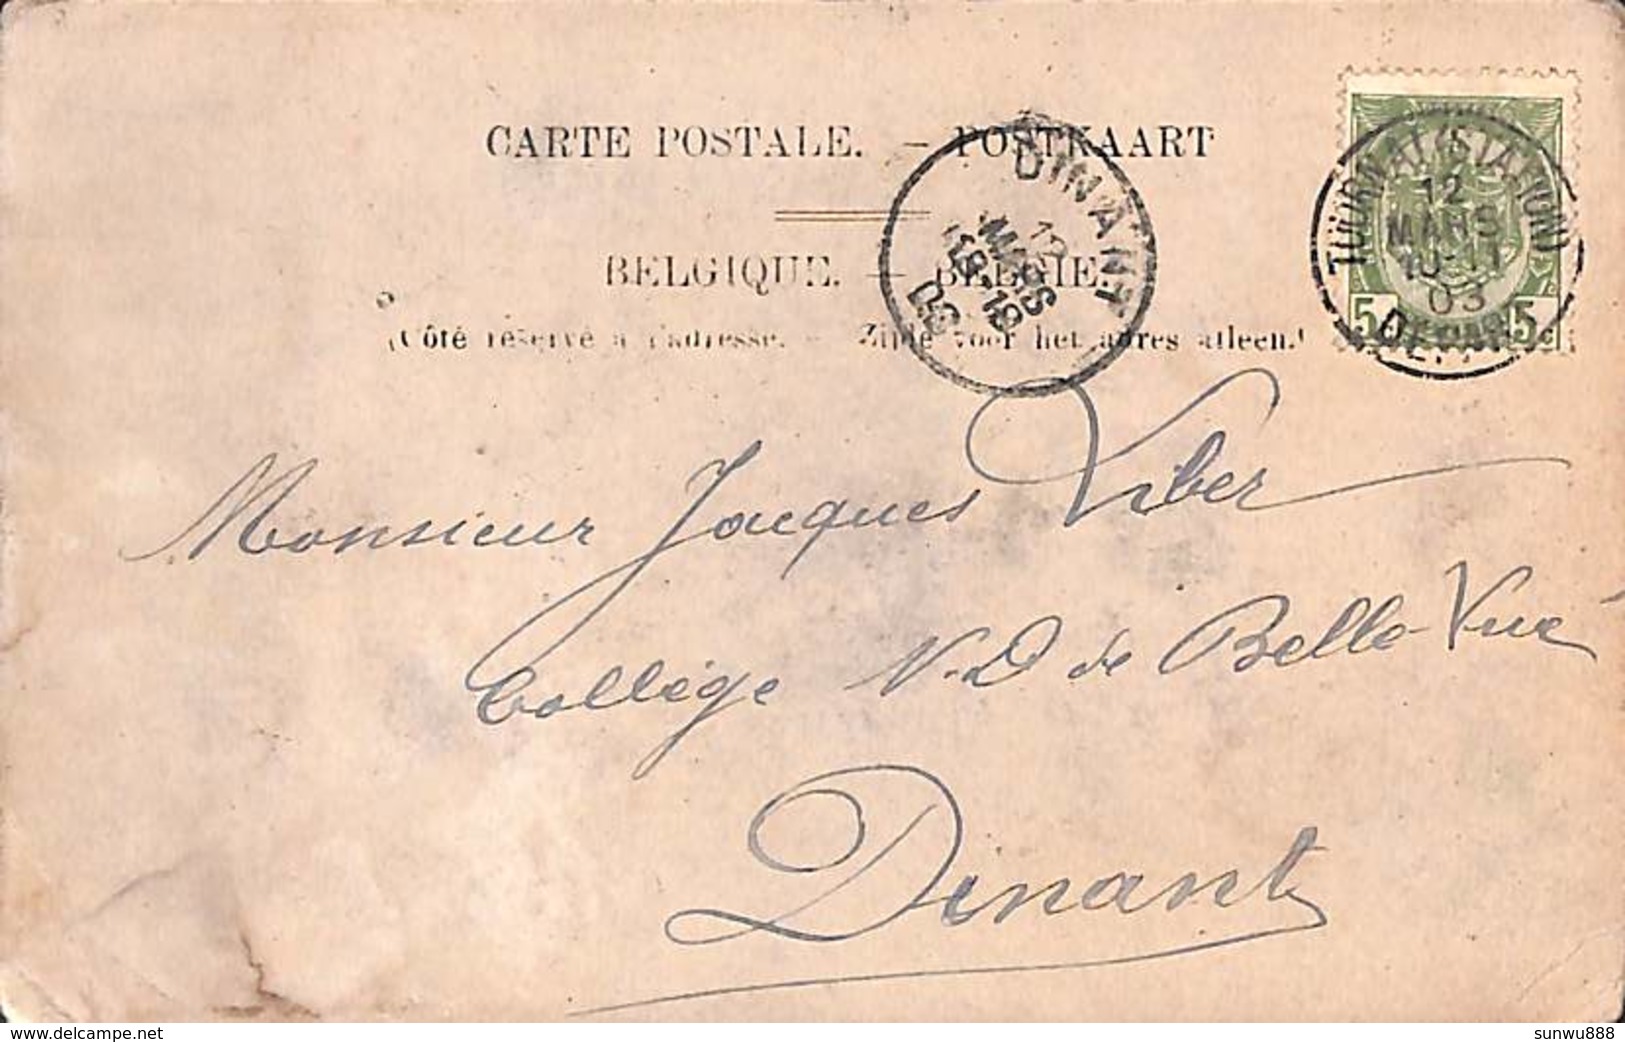 CARTE POSTALE. — POSTKAART
BELGIQUE. — BELGIE.
(Côté réservé à l'adresse. — Zijde voor het adres alleen.)
DINANT
12
MARS
18-19
03
TOURNAI (STATION)
12
MARS
10-11
03
DEPART
5c 5c
Monsieur Jacques Viber
Collége N.-D de Belle-Vue
Dinant
www.delcampe.net
sunwu888